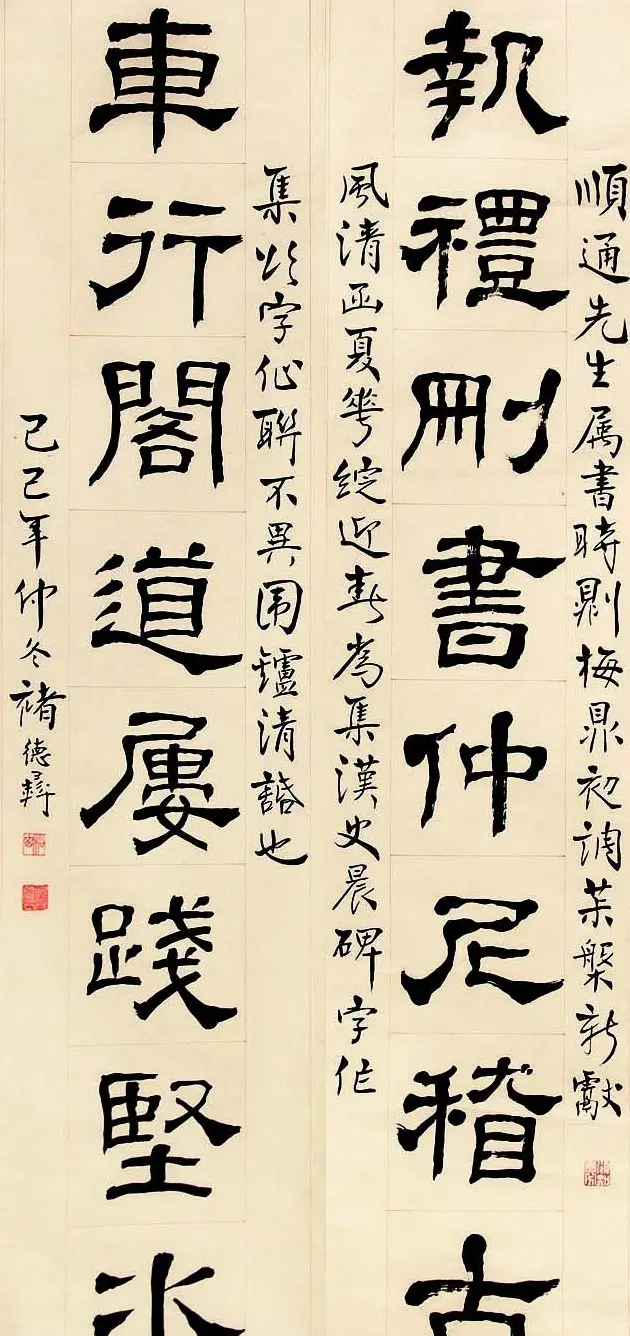 順通先生属書時則梅鼎初調槃新獻
執禮刪書仲尼稽古
風清函夏華綻迎春為集漢史晨碑字作
集此字作聯不異围鑪清話也
車行閣道屢踐堅
己巳年仲冬褚德彝